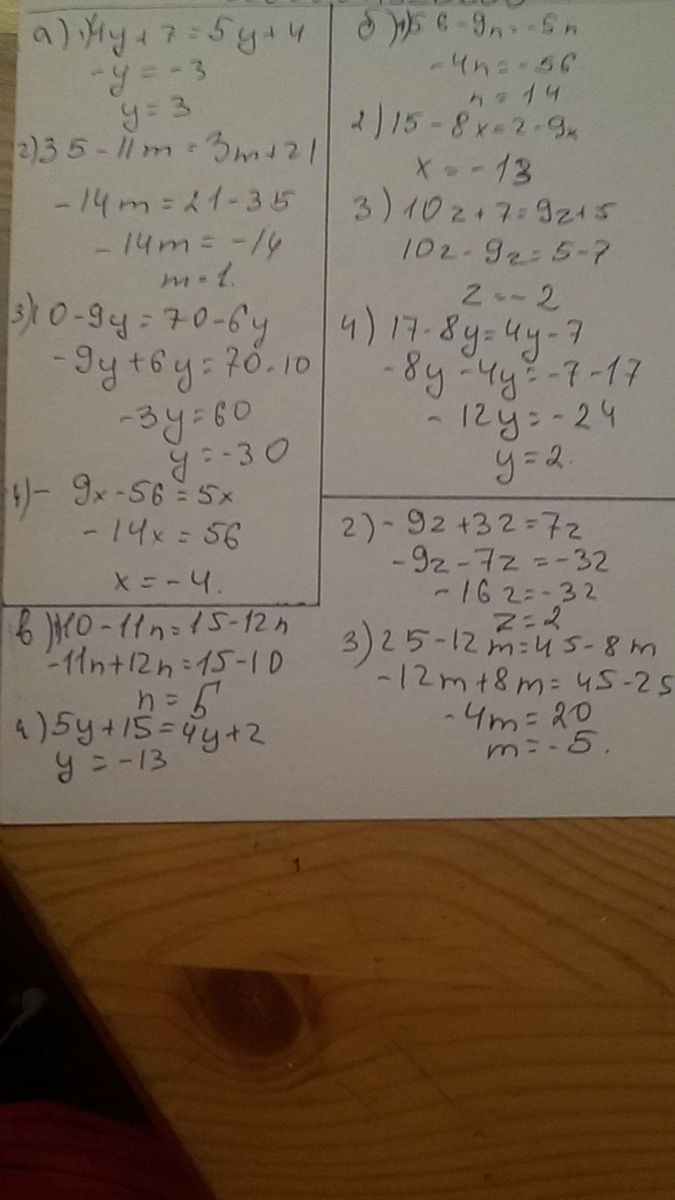 а) 1) 4y + 7 = 5y + 4
-y = -3
y = 3
2) 35 - 11m = 3m + 21
-14m = 21 - 35
-14m = -14
m = 1.
3) 10 - 9y = 70 - 6y
-9y + 6y = 70 - 10
-3y = 60
y = -30
4) - 9x - 56 = 5x
-14x = 56
x = -4.
б) 1) 56 - 9n = -5n
-4n = -56
n = 14
2) 15 - 8x = 2 - 9x
x = -13
3) 10z + 7 = 9z + 5
10z - 9z = 5 - 7
z = -2
4) 17 - 8y = 4y - 7
-8y - 4y = -7 - 17
-12y = -24
y = 2.
в) 1) 10 - 11n = 15 - 12n
-11n + 12n = 15 - 10
n = 5
4) 5y + 15 = 4y + 2
y = -13
2) - 9z + 32 = 7z
-9z - 7z = -32
-16z = -32
z = 2
3) 25 - 12m = 45 - 8m
-12m + 8m = 45 - 25
-4m = 20
m = -5.